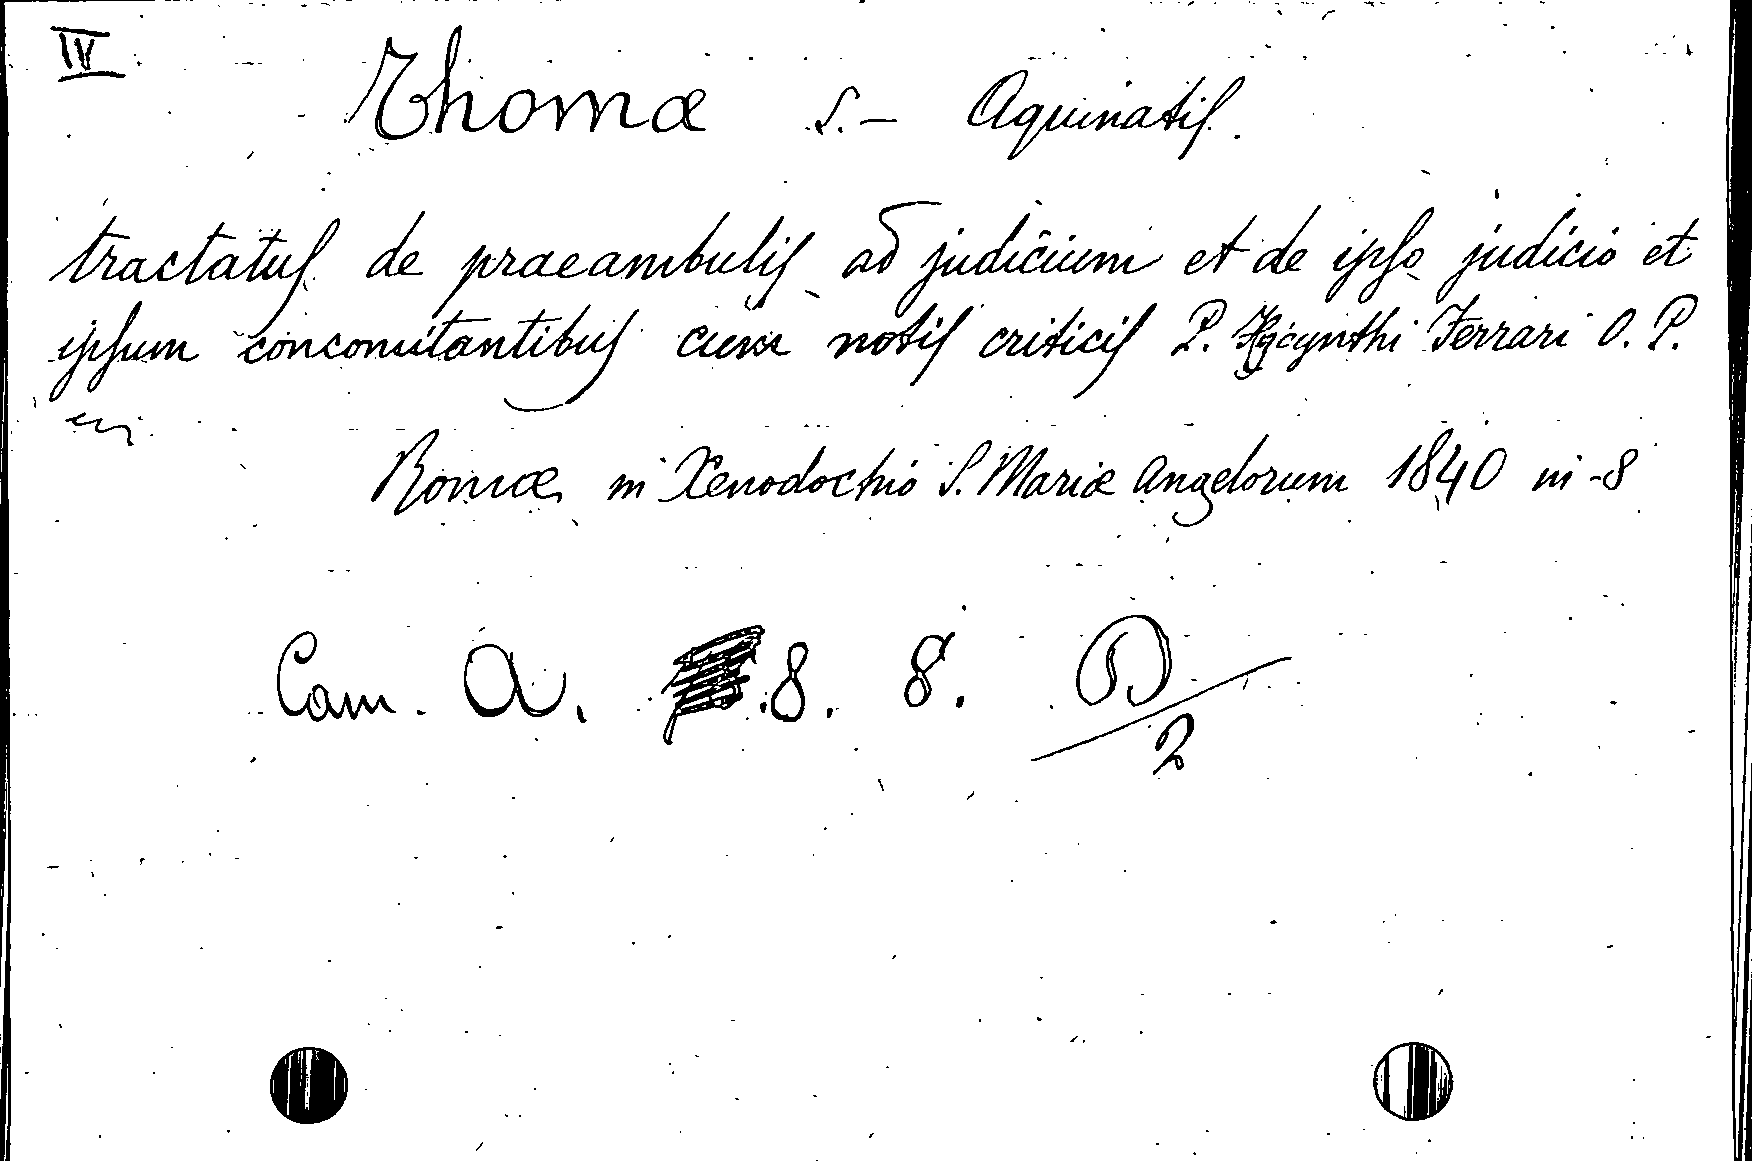 IV
Thomæ S. - Aquinatis.
tractatus de praeambulis ad judicium et de ipso judicio et
ipsum concomitantibus cum notis criticis P. Hyacynthi Ferrari O. P.
Romæ in Xenodochio S. Mariæ Angelorum 1840 in-8
Cam. A. .8. 8. D/2